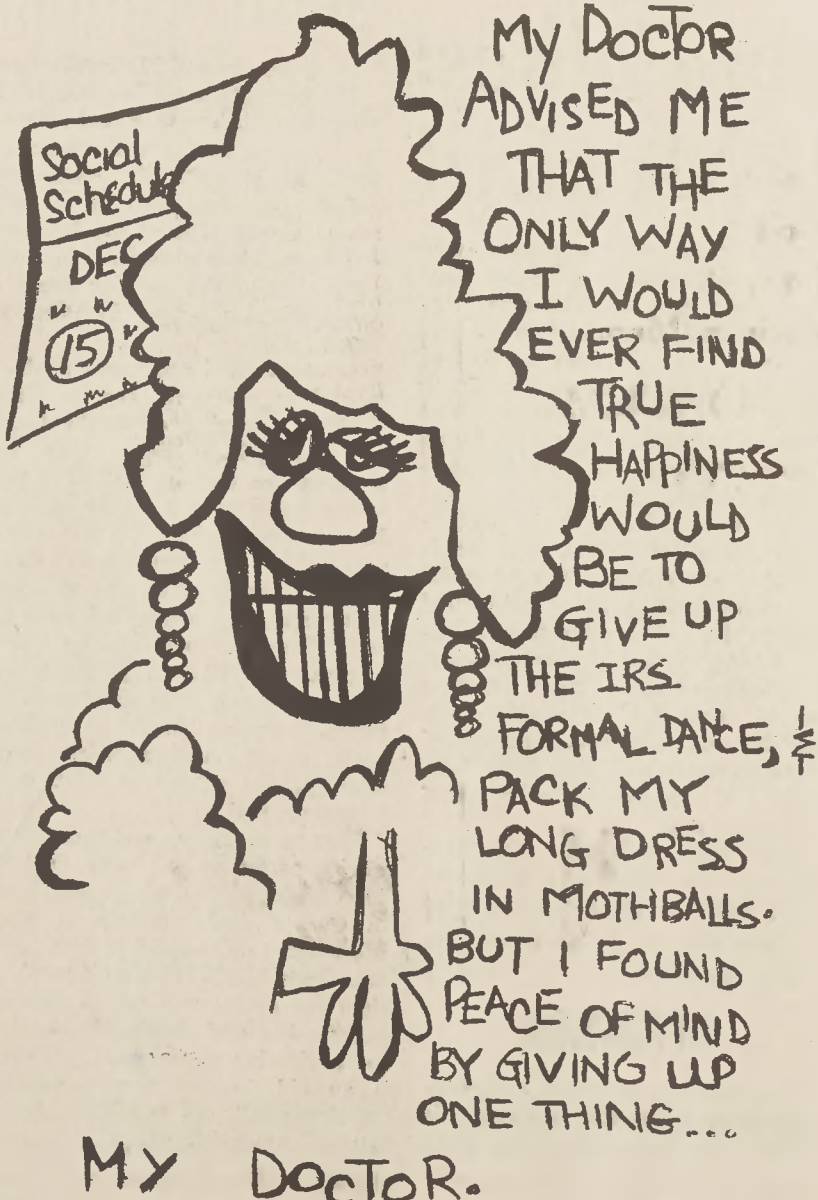 Social
Schedule
DEC
15
My DOCTOR
ADVISED ME
THAT THE
ONLY WAY
I WOULD
EVER FIND
TRUE
HAPPINESS
WOULD
BE TO
GIVE UP
THE IRS
FORMAL DANCE, &
PACK MY
LONG DRESS
IN MOTHBALLS.
BUT I FOUND
PEACE OF MIND
BY GIVING UP
ONE THING...
MY DOCTOR.